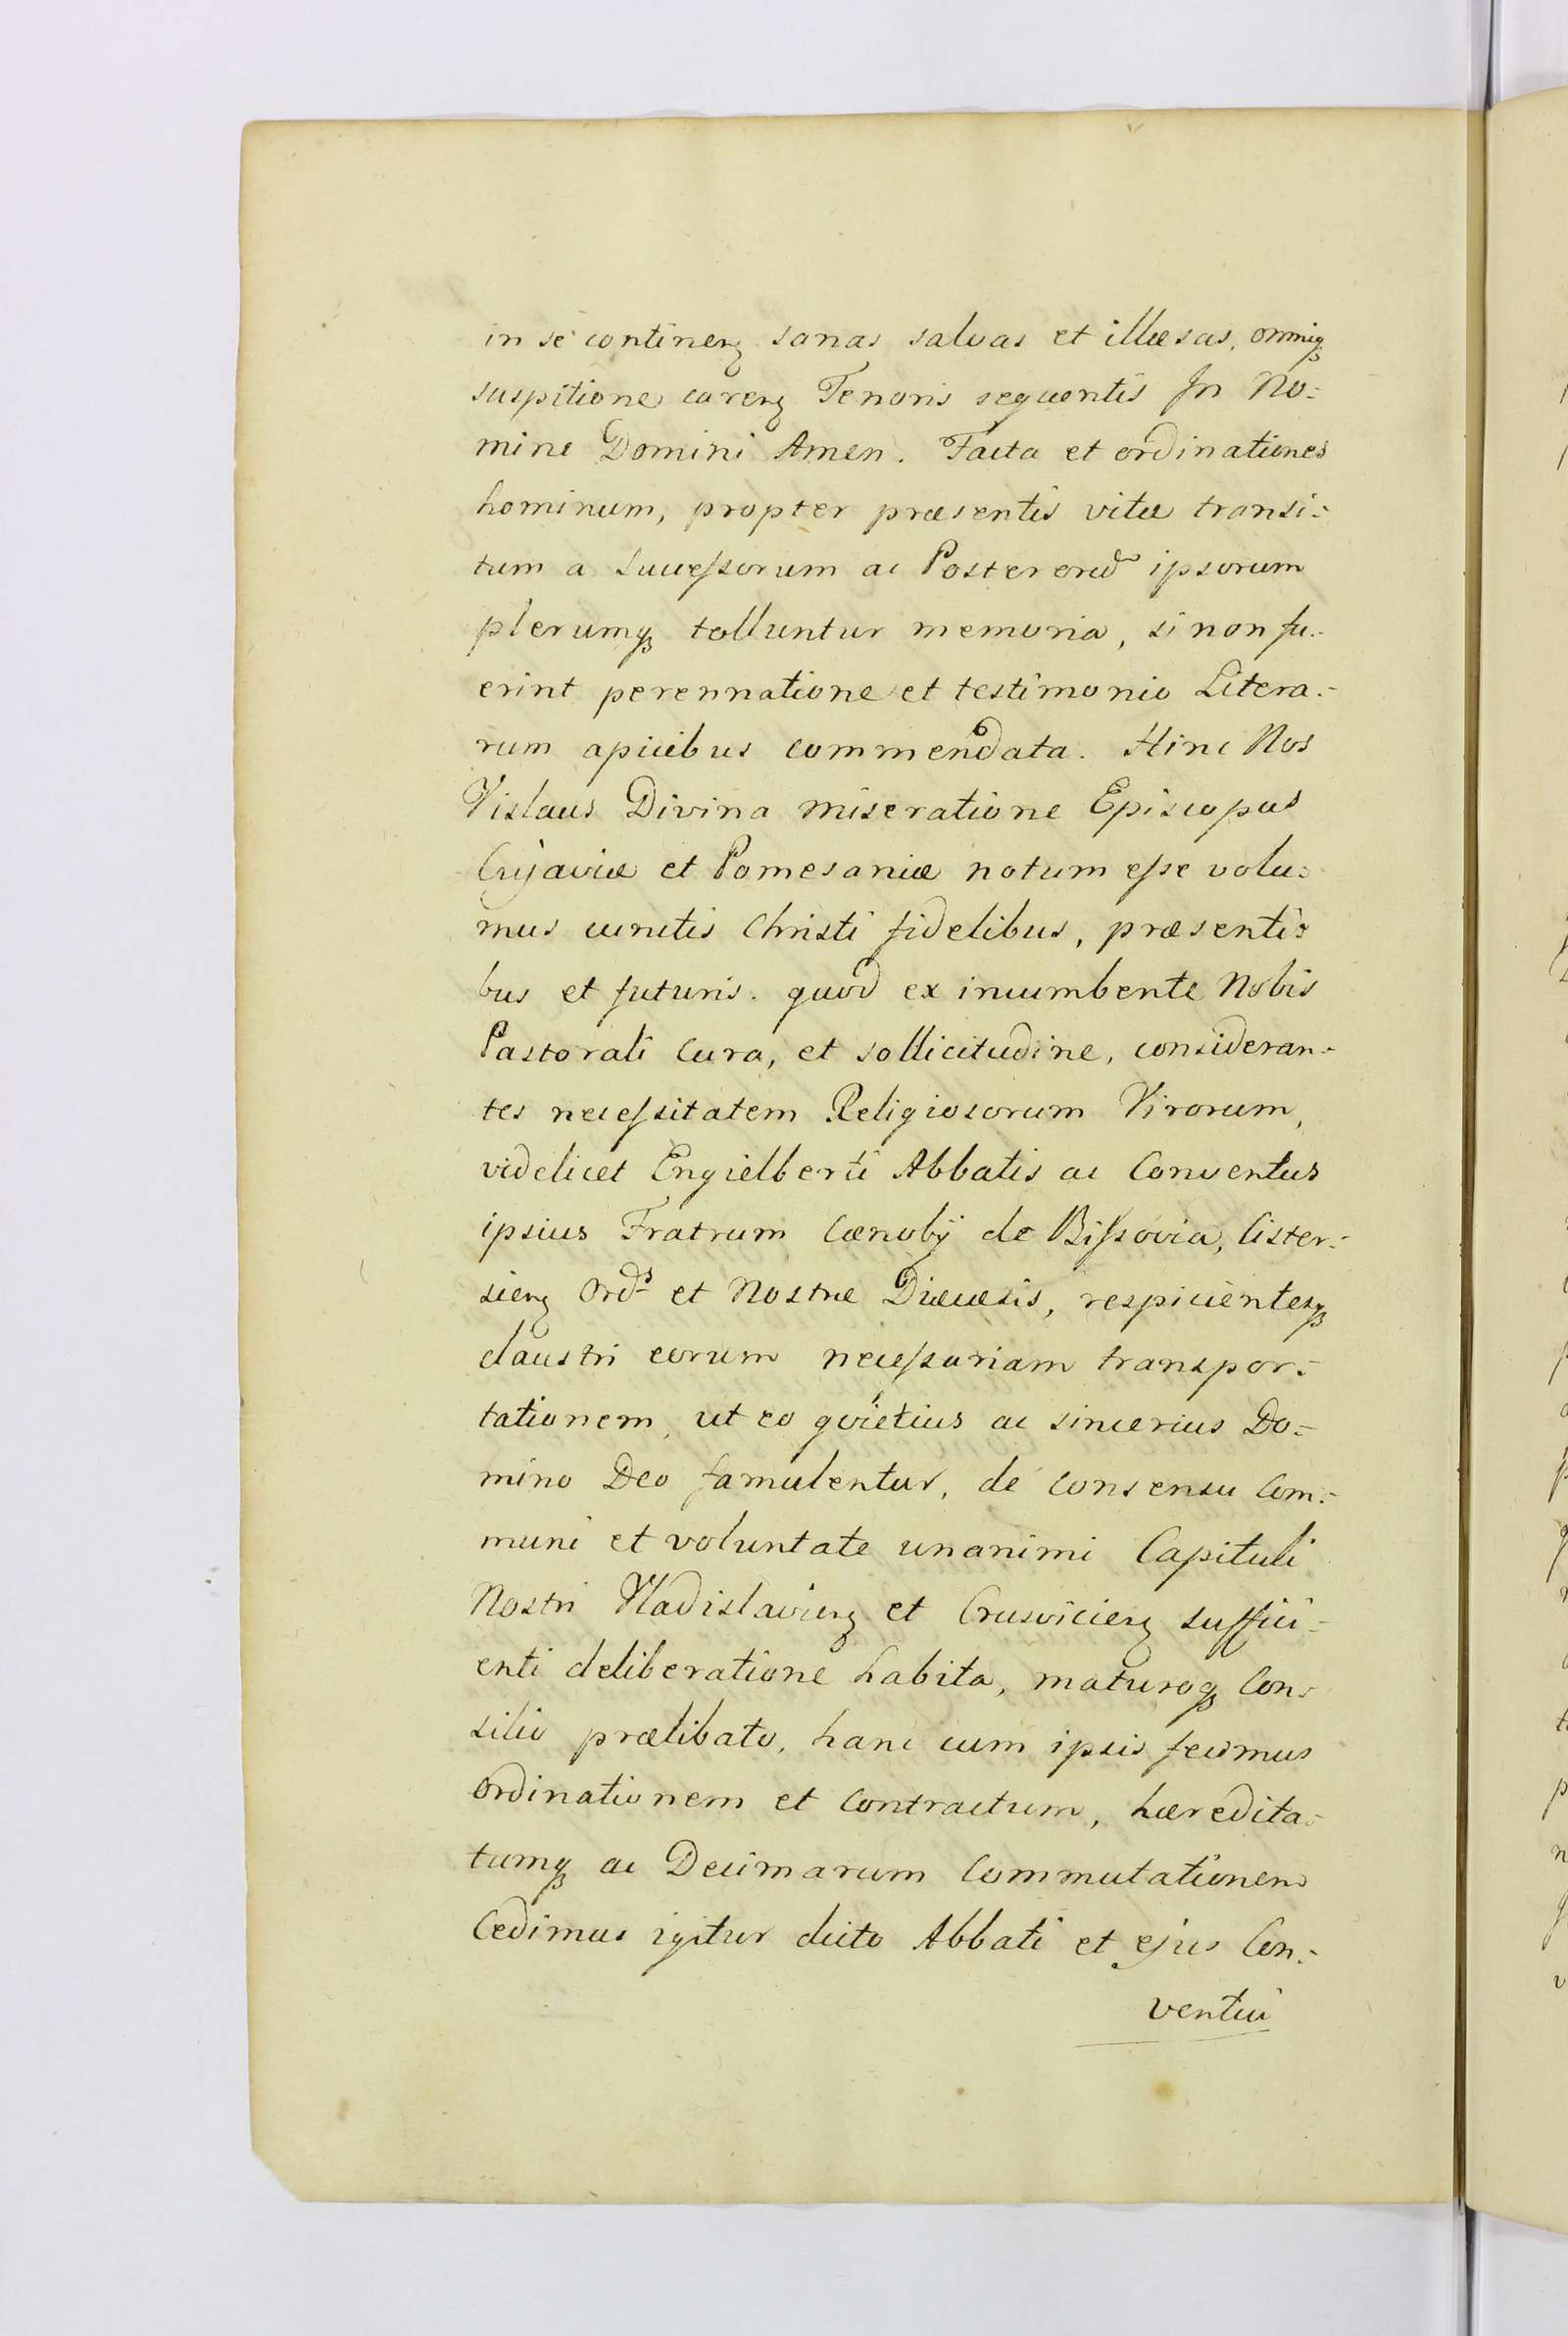 in se continenꝫ sanas salvas et illæsas, omniqꝫ
suspitione carenꝫ Tenoris sequentis In No:
mine Domini Amen. Facta et ordinationes
hominum, propter præsentis vitæ transi:
tum a Succeſsorum ac Posterorũ ipsorum
plerumqꝫ tolluntur memoria, si non fu:
erint perennatione et testimonio Litera:
rum apicibus commendata. Hinc Nos
Vislaus Divina miseratione Episcopus
Cujaviæ et Pomesaniæ notum eſse volu:
mus cunctis Christi fidelibus, præsenti:
bus et futuris. quod ex incumbente Nobis
Pastorali Cura, et sollicitudine, consideran:
tes neceſsitatem Religiosorum Virorum,
videlicet Engielberti Abbatis ac Conventus
ipsius Fratrum Cænobij de Biſsovia, Cister:
cienꝫ Ordˢ et Nostræ Diæcæsis, respicientesqꝫ
claustri eorum neceſsariam transpor:
tationem, ut eo qvietius ac sincerius Do:
mino Deo famulentur, de consensu Com:
muni et voluntate unanimi Capituli
Nostri Wladislavienꝫ et Crusvicienꝫ suffici:
enti deliberatione habita, maturoqꝫ Con:
silio prælibato, hanc cum ipsis fecimus
Ordinationem et Contractum, hæredita:
tumqꝫ ac Decimarum Commutationem
Cedimus igitur dicto Abbati et ejus Con:
ventui